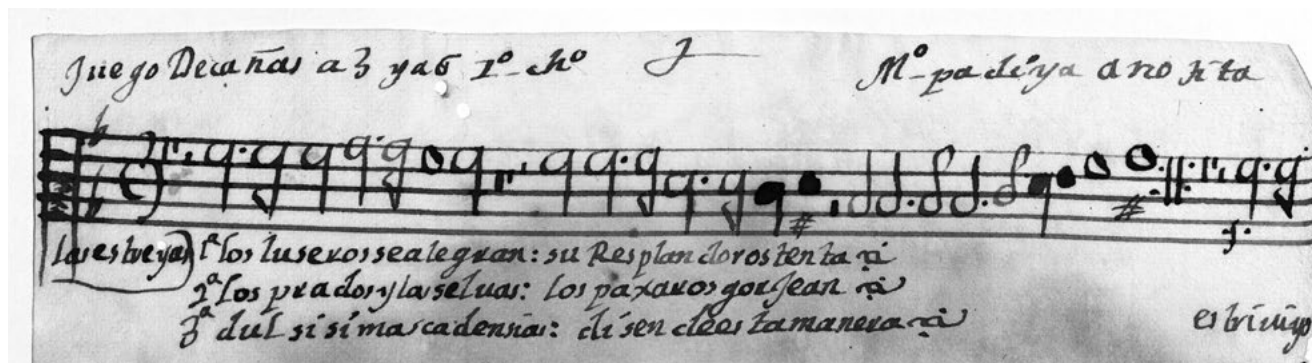 Juego De cañas a 3 y a 6 1º cho Mº padiya a no ta
las estreyas 1ª los luseros se alegran: su Resplandor ostenta
2ª los prados y las seluas: los paxaros gorjean
3ª dulsisimas cadensias: disen de esta manera